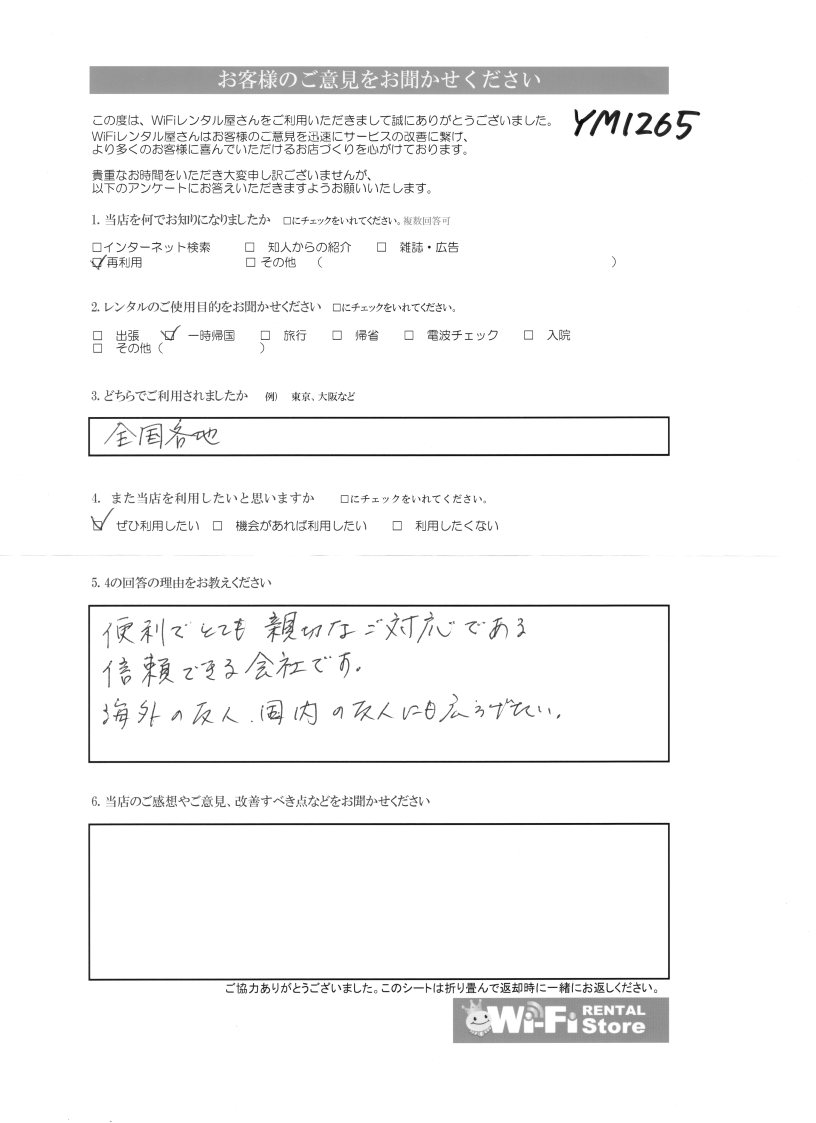 お客様のご意見をお聞かせください
この度は、WiFiレンタル屋さんをご利用いただきまして誠にありがとうございました。
YM1265
WiFiレンタル屋さんはお客様のご意見を迅速にサービスの改善に繋げ、
より多くのお客様に喜んでいただけるお店づくりを心がけております。
貴重なお時間をいただき大変申し訳ございませんが、
以下のアンケートにお答えいただきますようお願いいたします。
1. 当店を何でお知りになりましたか □にチェックをいれてください。複数回答可
□インターネット検索 □ 知人からの紹介 □ 雑誌・広告
☑再利用 □ その他 ( )
2. レンタルのご使用目的をお聞かせください □にチェックをいれてください。
□ 出張 ☑ 一時帰国 □ 旅行 □ 帰省 □ 電波チェック □ 入院
□ その他 ( )
3. どちらでご利用されましたか 例) 東京、大阪など
全国各地
4. また当店を利用したいと思いますか □にチェックをいれてください。
☑ ぜひ利用したい □ 機会があれば利用したい □ 利用したくない
5. 4の回答の理由をお教えください
便利でとても親切なご対応である
信頼できる会社です。
海外の友人、国内の友人にも広うげたい。
6. 当店のご感想やご意見、改善すべき点などをお聞かせください
ご協力ありがとうございました。このシートは折り畳んで返却時に一緒にお返しください。
Wi-Fi RENTAL Store